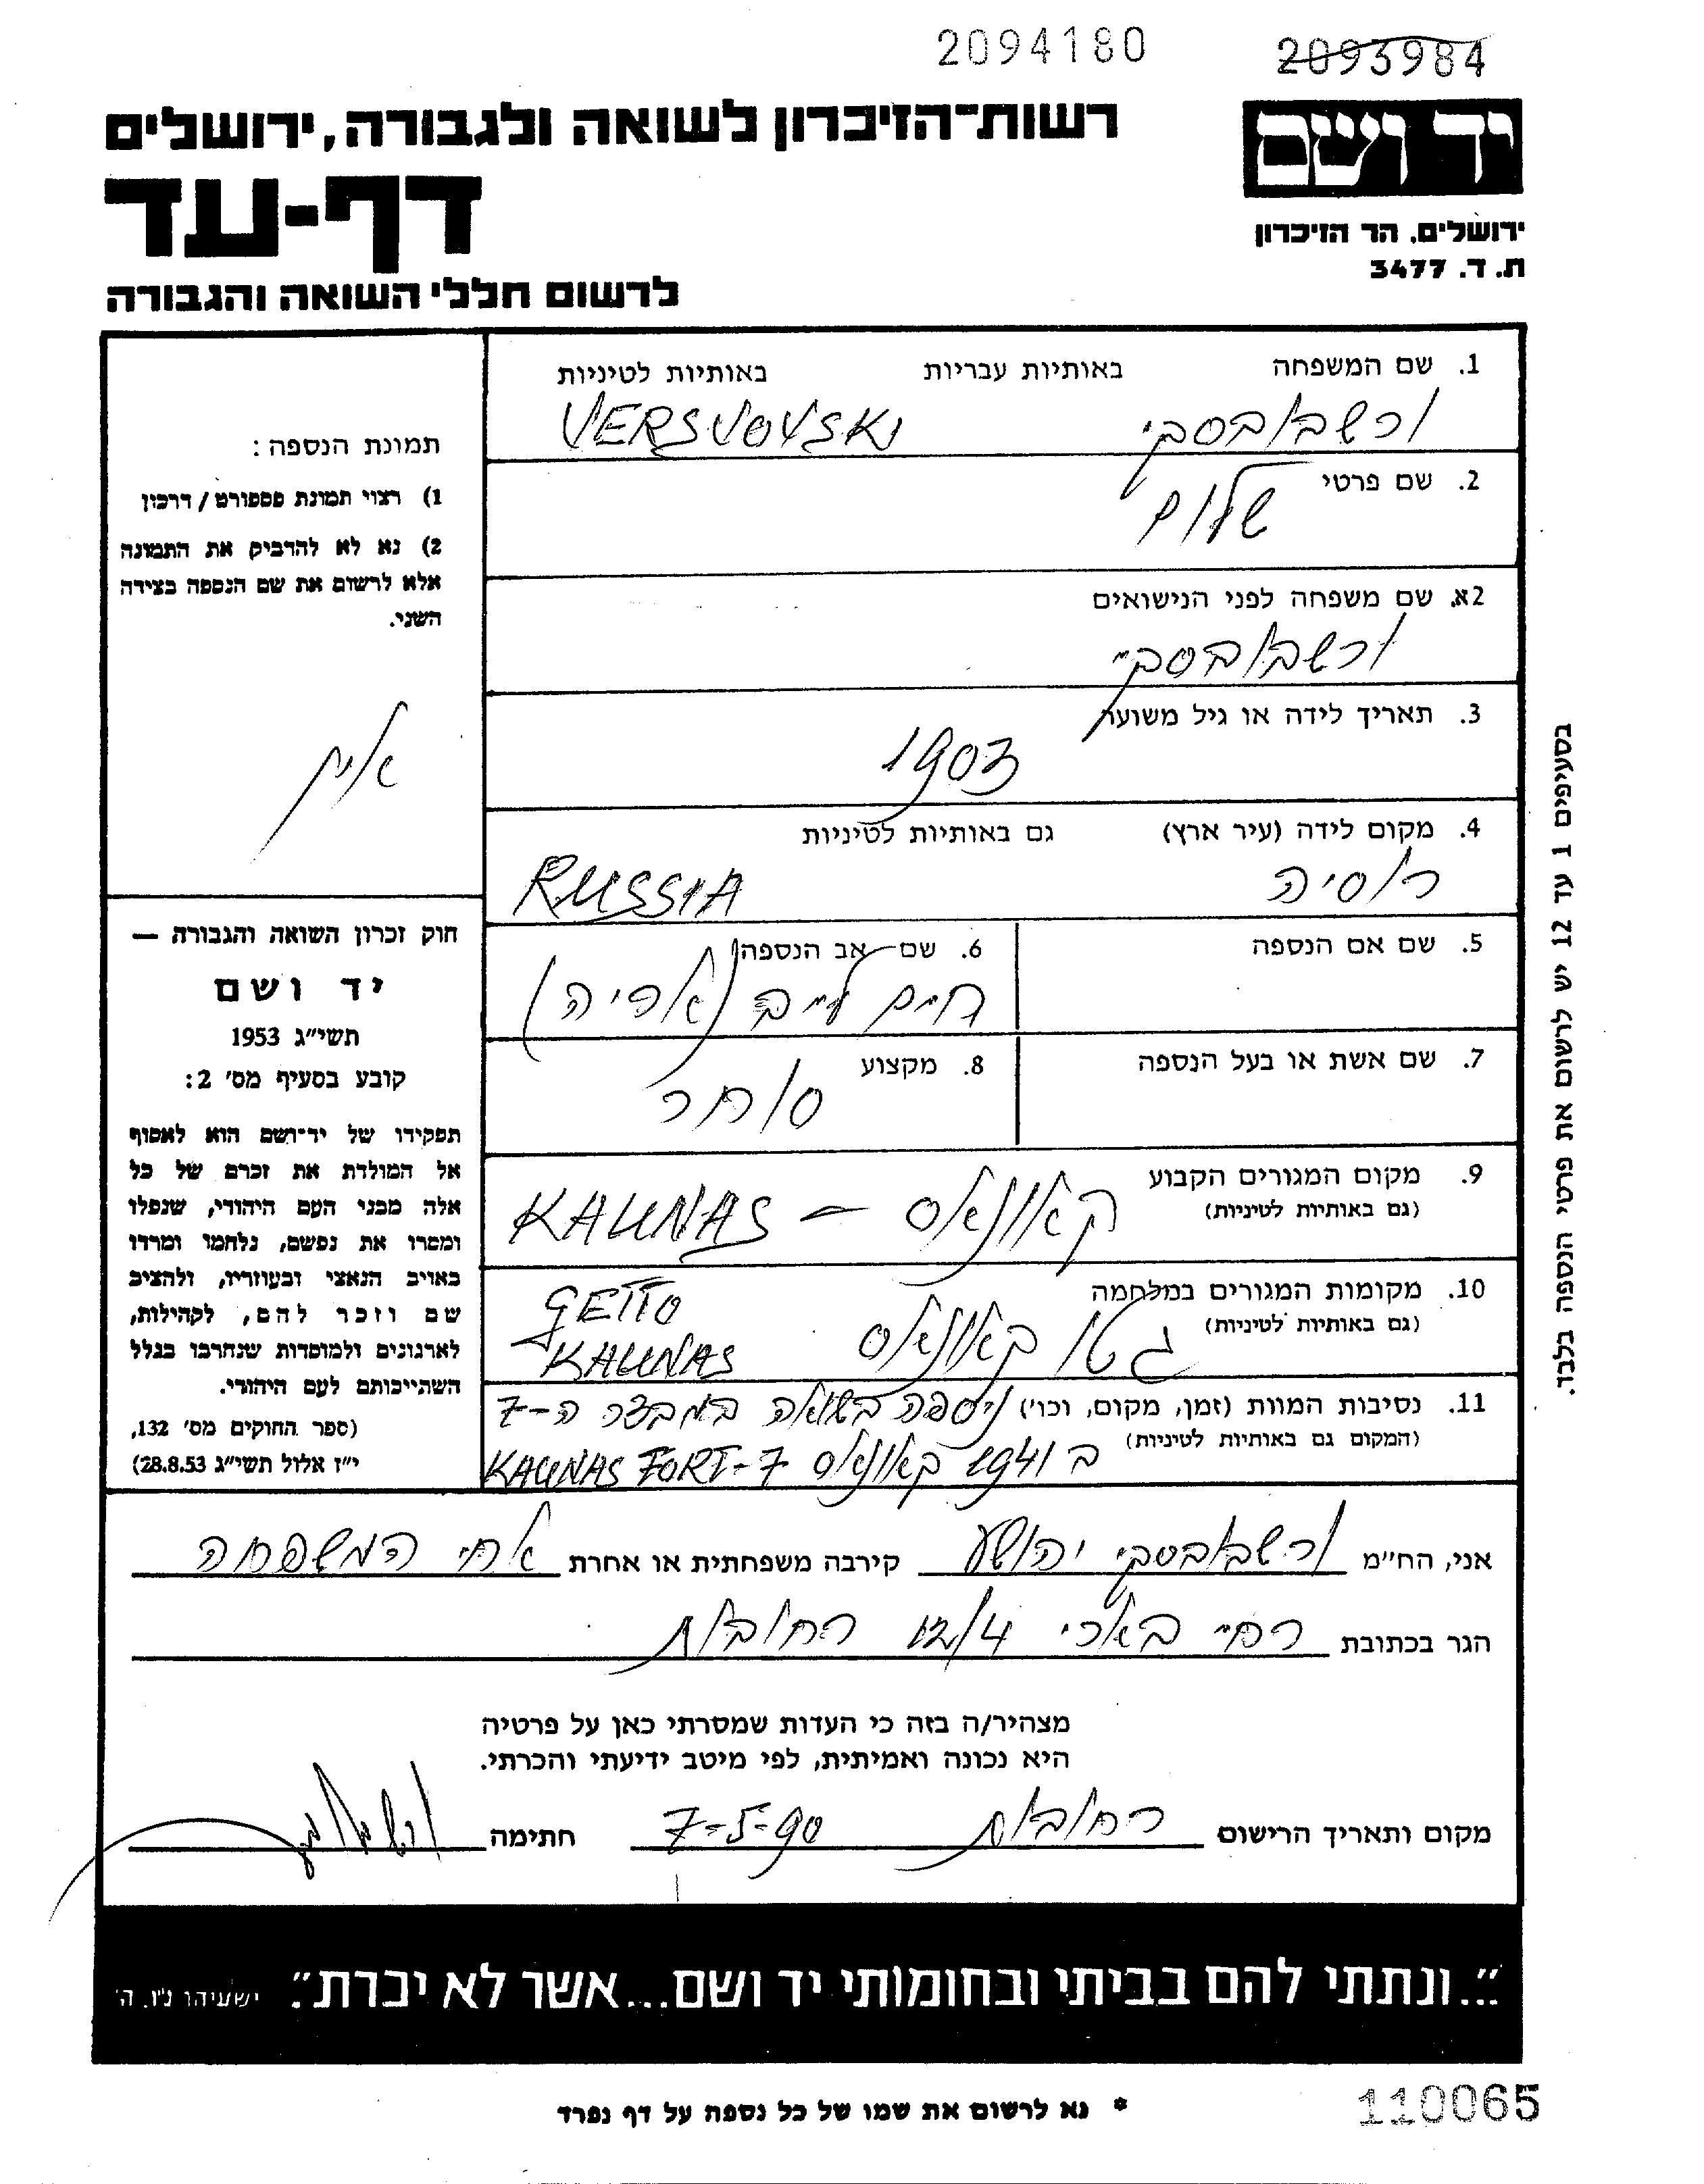 2094180
2093984
יד ושם
רשות־הזיכרון לשואה ולגבורה, ירושלים
דף-עד
לרשום חללי השואה והגבורה
ירושלים, הר הזיכרון
ת. ד. 3477
1. שם המשפחה באותיות עבריות באותיות לטיניות
ורשבובסקי VERSVOVSKI
2. שם פרטי
שלום
2א. שם משפחה לפני הנישואים
ורשבובסקי
3. תאריך לידה או גיל משוער
1903
4. מקום לידה (עיר ארץ) גם באותיות לטיניות
רוסיה RUSSIA
5. שם אם הנספה
6. שם אב הנספה
חיים לייב (אריה)
7. שם אשת או בעל הנספה
8. מקצוע
סוחר
9. מקום המגורים הקבוע
(גם באותיות לטיניות)
קאונאס – KAUNAS
10. מקומות המגורים במלחמה
(גם באותיות לטיניות)
גטו קאונאס GETTO
KAUNAS
11. נסיבות המוות (זמן, מקום, וכו') ניספה בשואה במבצר ה-7
(המקום גם באותיות לטיניות) ב 1941 קאונאס KAUNAS FORT-7
תמונת הנספה:
1) רצוי תמונת פספורט / דרכון
2) נא לא להדביק את התמונה
אלא לרשום את שם הנספה בצידה
השני.
אין
חוק זכרון השואה והגבורה —
יד ושם
תשי״ג 1953
קובע בסעיף מס׳ 2:
תפקידו של יד־ושם הוא לאסוף
אל המולדת את זכרם של כל
אלה מבני העם היהודי, שנפלו
ומסרו את נפשם, נלחמו ומרדו
באויב הנאצי ובעוזריו, ולהציב
שם וזכר להם, לקהילות,
לארגונים ולמוסדות שנחרבו בגלל
השתייכותם לעם היהודי.
(ספר החוקים מס׳ 132,
י״ז אלול תשי״ג 28.8.53)
בסעיפים 1 עד 12 יש לרשום את פרטי הנספה בלבד.
אני, הח״מ ורשבובסקי יהושע קירבה משפחתית או אחרת אחי המשפחה
הגר בכתובת 12/4 רחובות
מצהיר/ה בזה כי העדות שמסרתי כאן על פרטיה
היא נכונה ואמיתית, לפי מיטב ידיעתי והכרתי.
מקום ותאריך הרישום רחובות 7-5-90 חתימה
״...ונתתי להם בביתי ובחומותי יד ושם...אשר לא יכרת״. ישעיהו נ״ו, ה׳
* נא לרשום את שמו של כל נספה על דף נפרד
110065